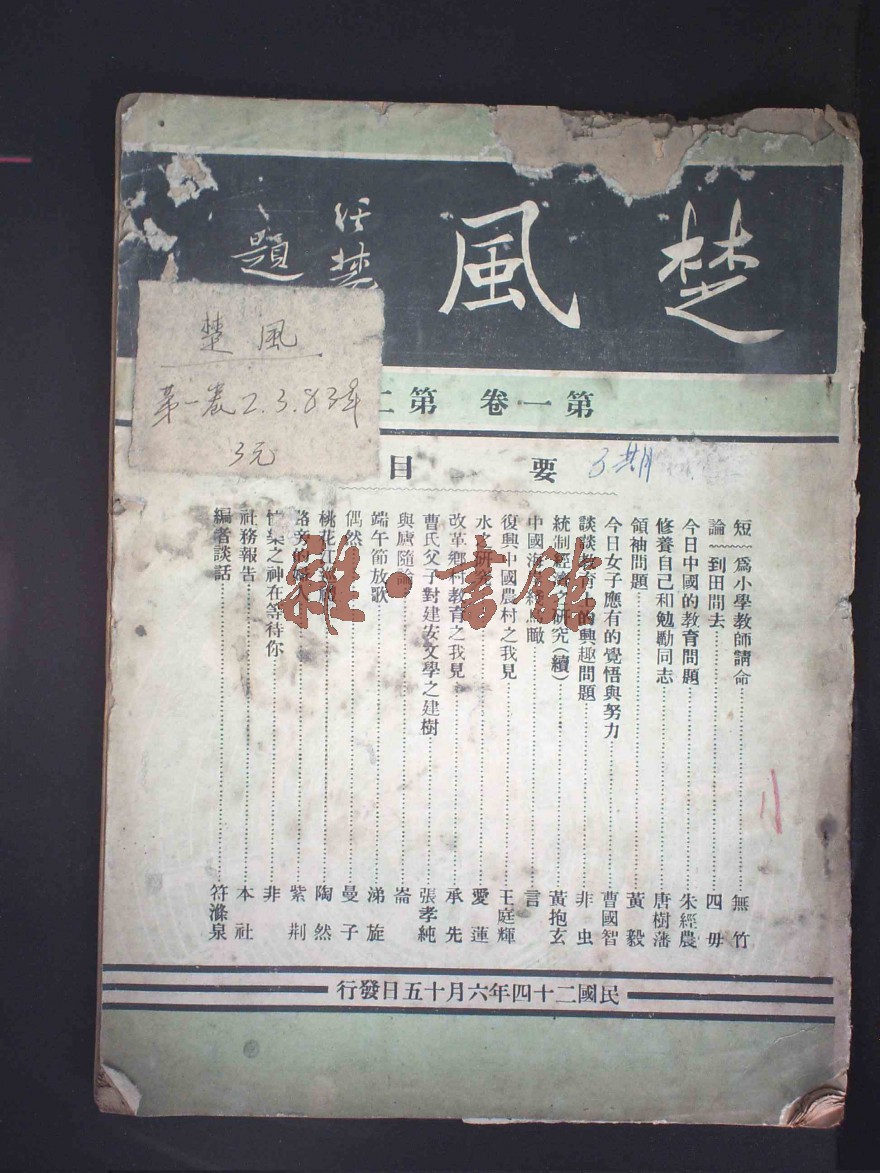 楚風
任
題
楚風
第一卷2.3.
3元
第一卷 第二
要目
3期
短論
爲小學教師請命 無竹
到田間去 四毋
今日中國的教育問題 朱經農
修養自己和勉勵同志 唐樹藩
領袖問題 黃毅
今日女子應有的覺悟與努力 曹國智
談談教育上的興趣問題 非虫
統制經濟之研究(續) 黃抱玄
中國海 瞰 言
復興中國農村之我見 王庭輝
水之研究 愛蓮
改革鄉村教育之我見 承先
曹氏父子對建安文學之建樹 張孝純
與廬隨論 崙
端午節放歌 涕旋
偶然 曼子
桃花江 陶然
路旁的婦人 紫荆
之神在等待你 非
社務報告 本社
編者談話 符滌泉
民國二十四年六月十五日發行
雜·書館